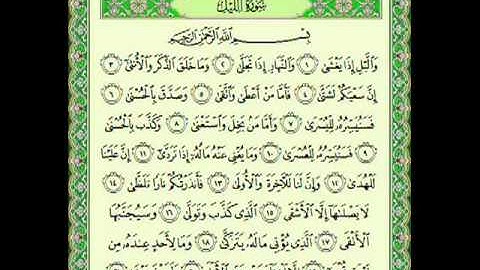 سُورَةُ اللَّيْلِ
بِسْمِ اللَّهِ الرَّحْمَٰنِ الرَّحِيمِ
وَاللَّيْلِ إِذَا يَغْشَىٰ ١ وَالنَّهَارِ إِذَا تَجَلَّىٰ ٢ وَمَا خَلَقَ الذَّكَرَ وَالْأُنثَىٰ ٣
إِنَّ سَعْيَكُمْ لَشَتَّىٰ ٤ فَأَمَّا مَنْ أَعْطَىٰ وَاتَّقَىٰ ٥ وَصَدَّقَ بِالْحُسْنَىٰ ٦
فَسَنُيَسِّرُهُ لِلْيُسْرَىٰ ٧ وَأَمَّا مَن بَخِلَ وَاسْتَغْنَىٰ ٨ وَكَذَّبَ بِالْحُسْنَىٰ
٩ فَسَنُيَسِّرُهُ لِلْعُسْرَىٰ ١٠ وَمَا يُغْنِي عَنْهُ مَالُهُ إِذَا تَرَدَّىٰ ١١ إِنَّ عَلَيْنَا
لَلْهُدَىٰ ١٢ وَإِنَّ لَنَا لَلْآخِرَةَ وَالْأُولَىٰ ١٣ فَأَنذَرْتُكُمْ نَارًا تَلَظَّىٰ ١٤
لَا يَصْلَاهَا إِلَّا الْأَشْقَى ١٥ الَّذِي كَذَّبَ وَتَوَلَّىٰ ١٦ وَسَيُجَنَّبُهَا
الْأَتْقَى ١٧ الَّذِي يُؤْتِي مَالَهُ يَتَزَكَّىٰ ١٨ وَمَا لِأَحَدٍ عِندَهُ مِن